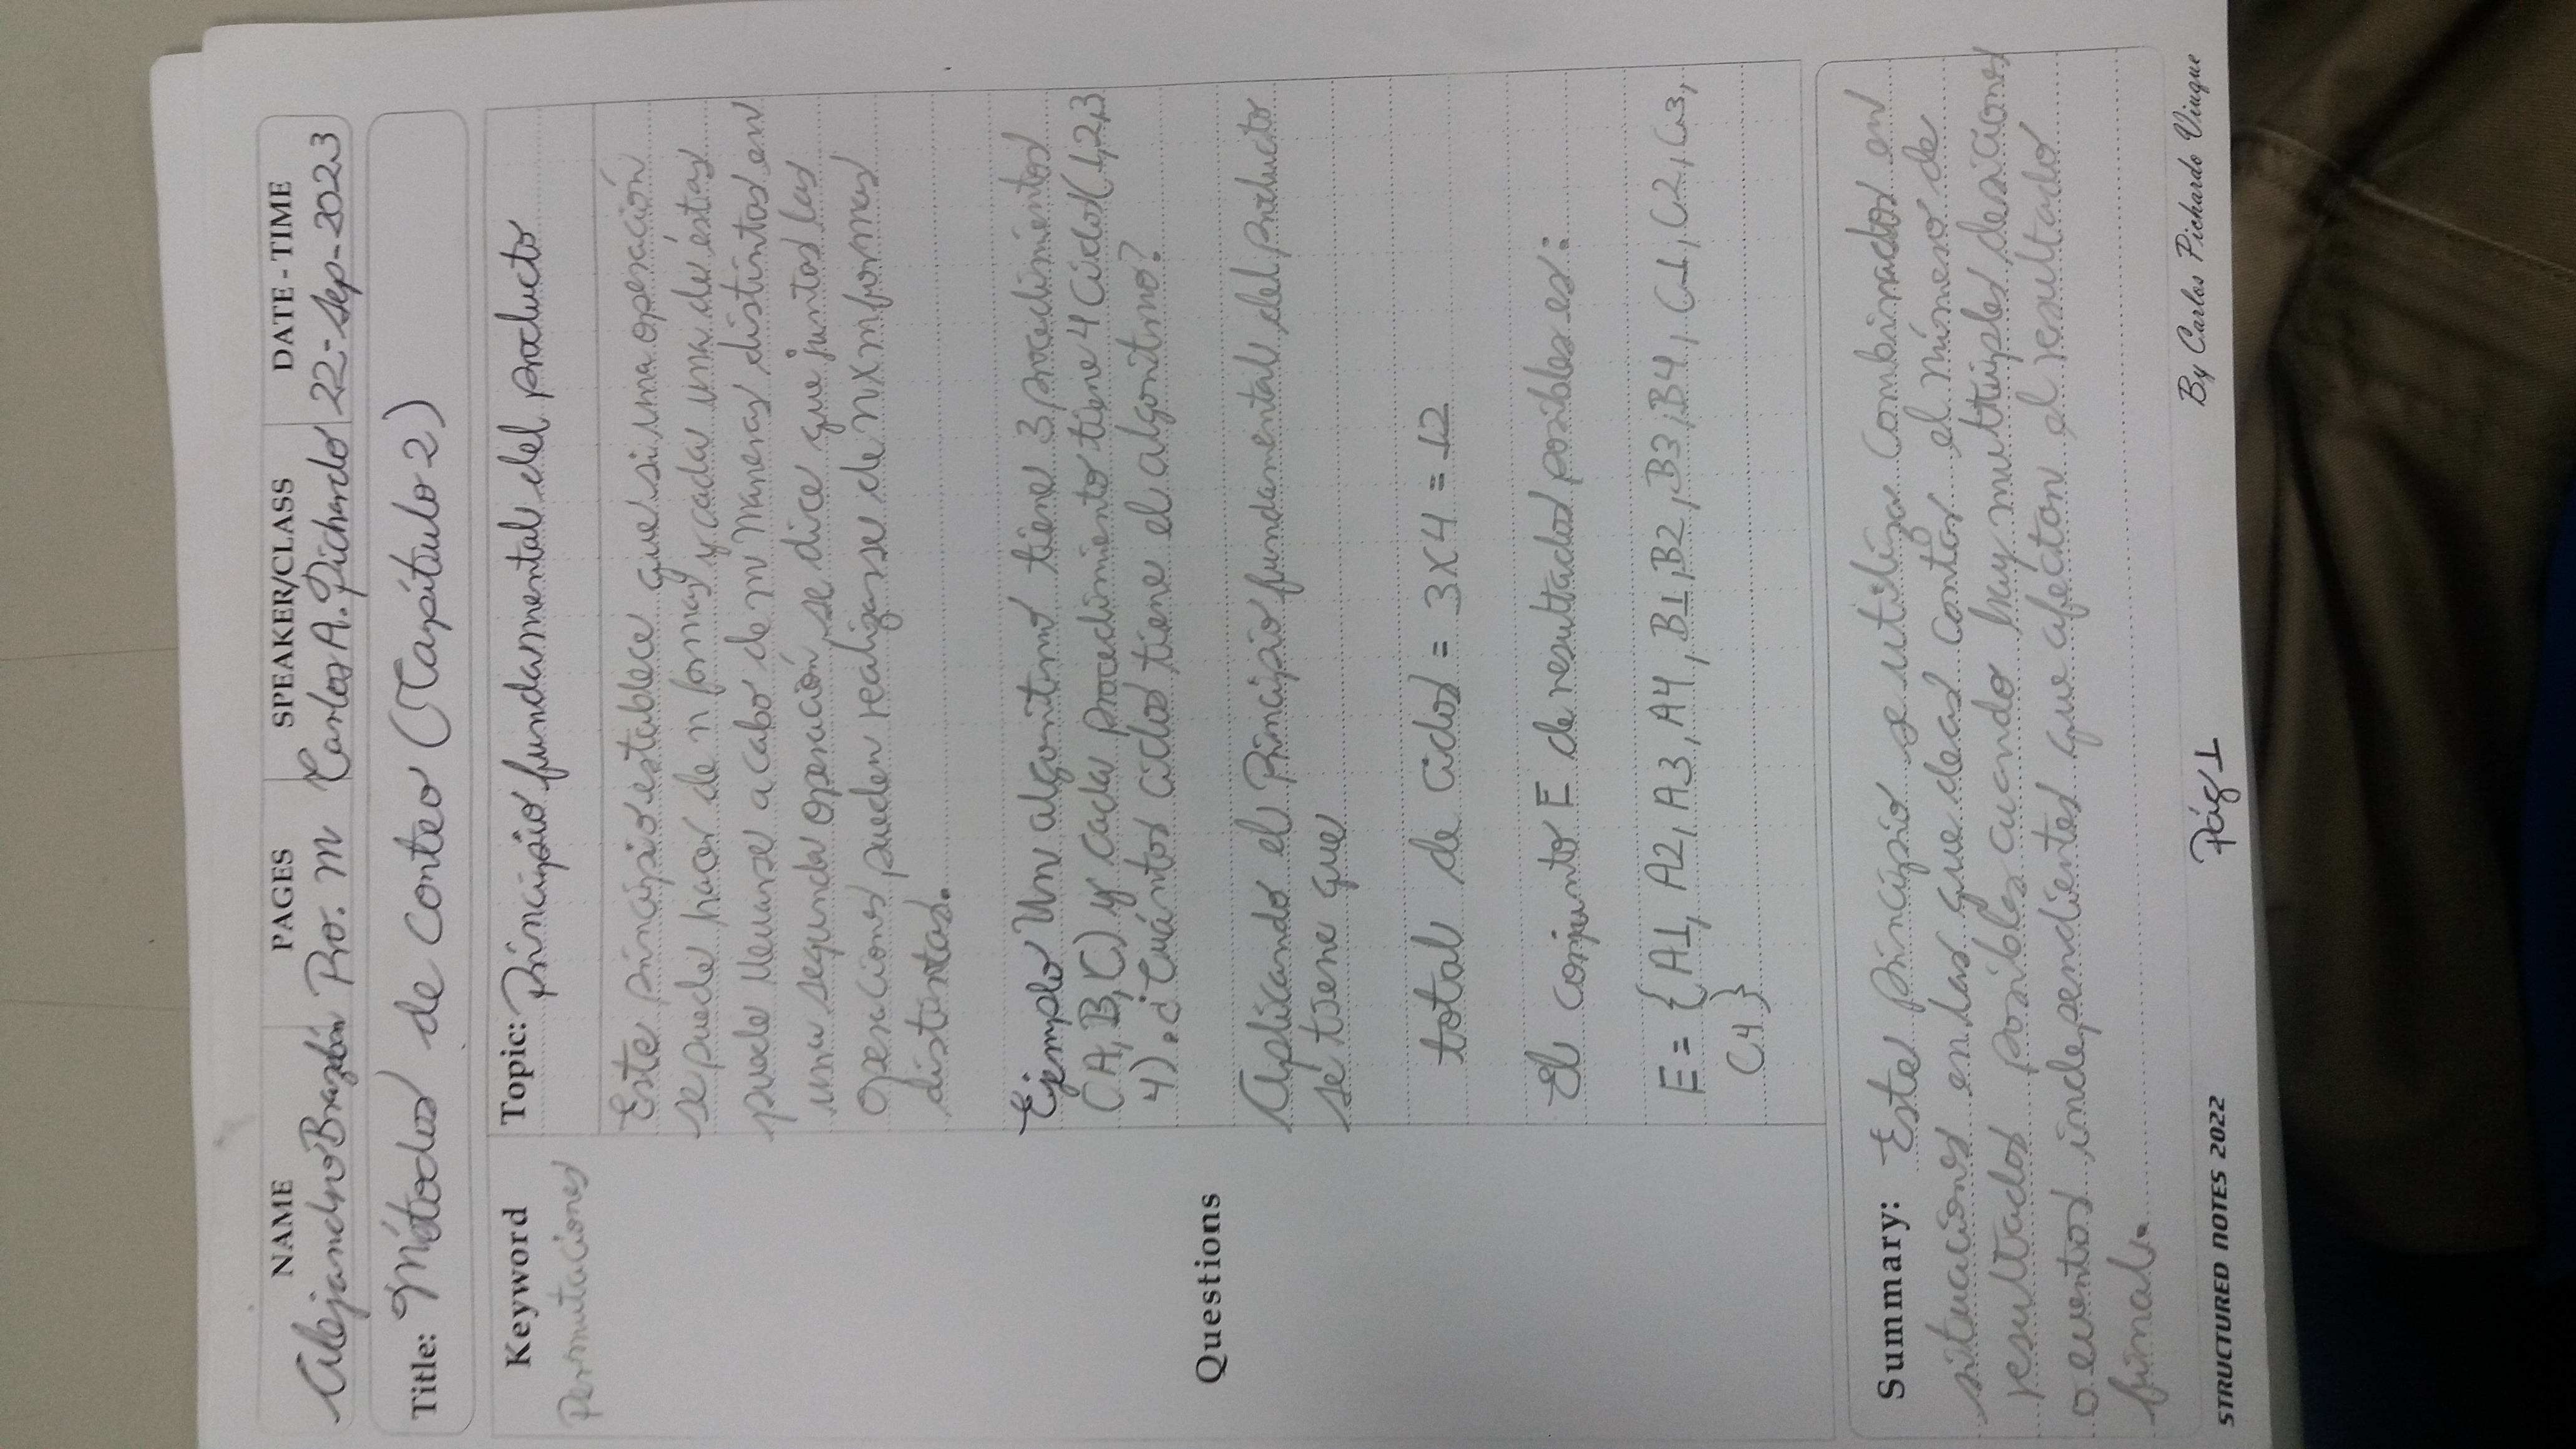 NAME PAGES SPEAKER/CLASS DATE-TIME
Alejandro Brazobán Pro. M Carlos A. Pichardo 22-Sep-2023
Title: Métodos de conteo (Capítulo 2)
Keyword
Permutaciones
Topic: Principio fundamental del producto
Este principio establece que si una operación
se puede hacer de n formas y cada una de éstas
puede llevarse a cabo de m maneras distintas en
una segunda operación, se dice que juntas las
operaciones pueden realizarse de n x m formas
distintas.
Ejemplo Un algoritmo tiene 3 procedimientos
(A, B, C) y cada procedimiento tiene 4 Ciclos (1,2,3
4). ¿Cuántos ciclos tiene el algoritmo?
Questions
Aplicando el Principio fundamental del producto
se tiene que
total de Ciclos = 3x4 = 12
El conjunto E de resultados posibles es:
E = {A1, A2, A3, A4, B1, B2, B3, B4, C1, C2, C3,
C4}
Summary: Este principio se utiliza combinados en
situaciones en las que deas contar el número de
resultados posibles cuando hay multiples desiciones
o eventos independientes que afectan el resultado
final.
STRUCTURED NOTES 2022
Pág 1
By Carlos Pichardo Viuque